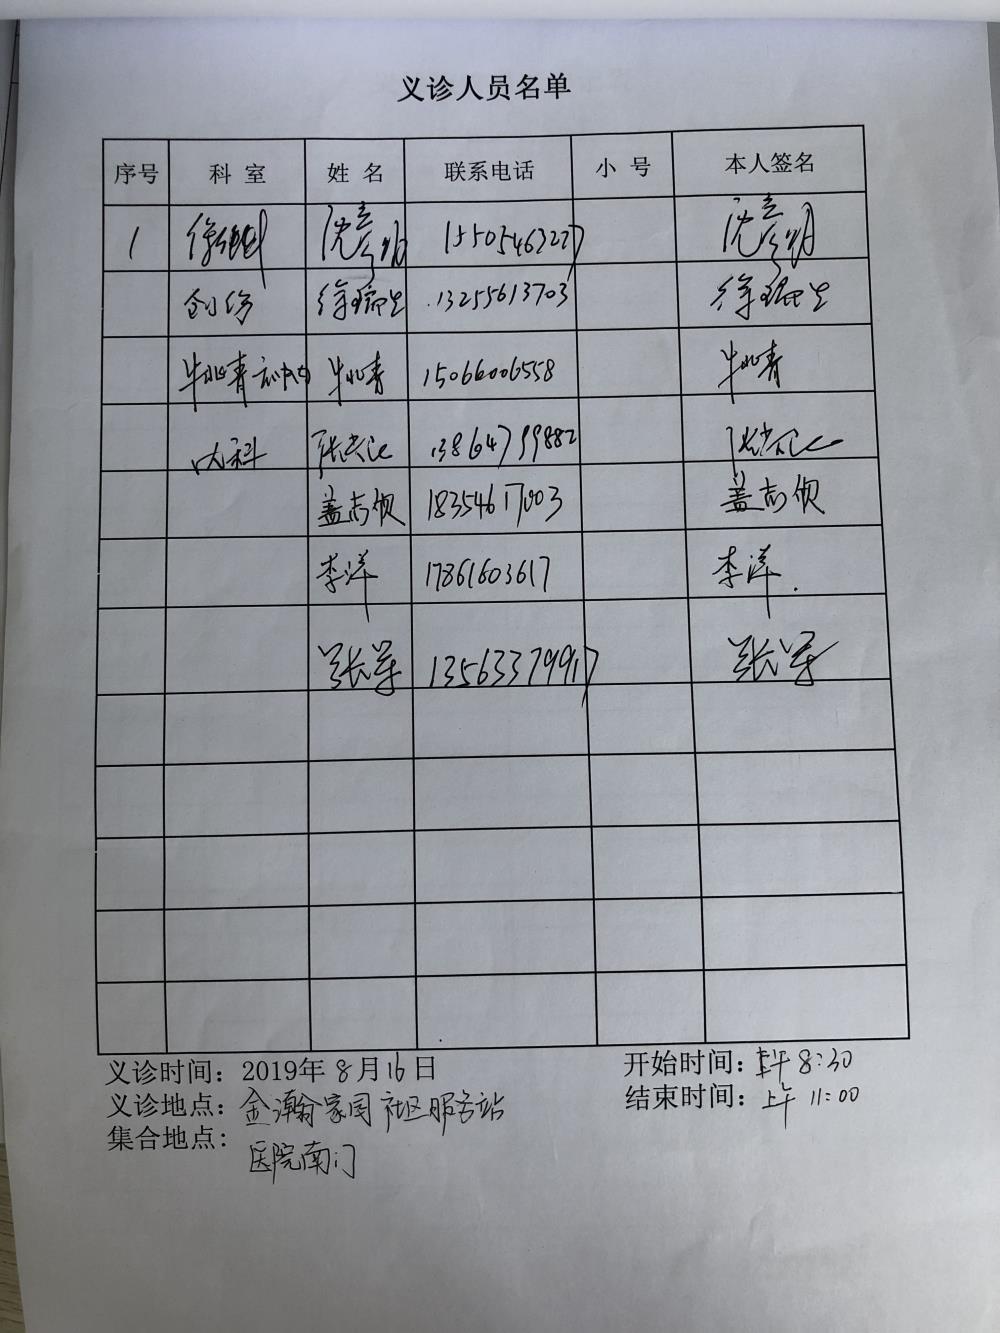 义诊人员名单
序号 科室 姓名 联系电话 小号 本人签名
1 沈彦明 15505463227 沈彦明
创伤 徐瑞生 13255613703 徐瑞生
牛兆青 牛兆青 15066006558 牛兆青
内科 13864799882
盖志侦 18354617003 盖志侦
李洋 17861603617 李洋
张军 13563379917 张军
义诊时间：2019年8月16日 开始时间：上午8:30
义诊地点：金瀚家园社区服务站 结束时间：上午 11:00
集合地点：
医院南门